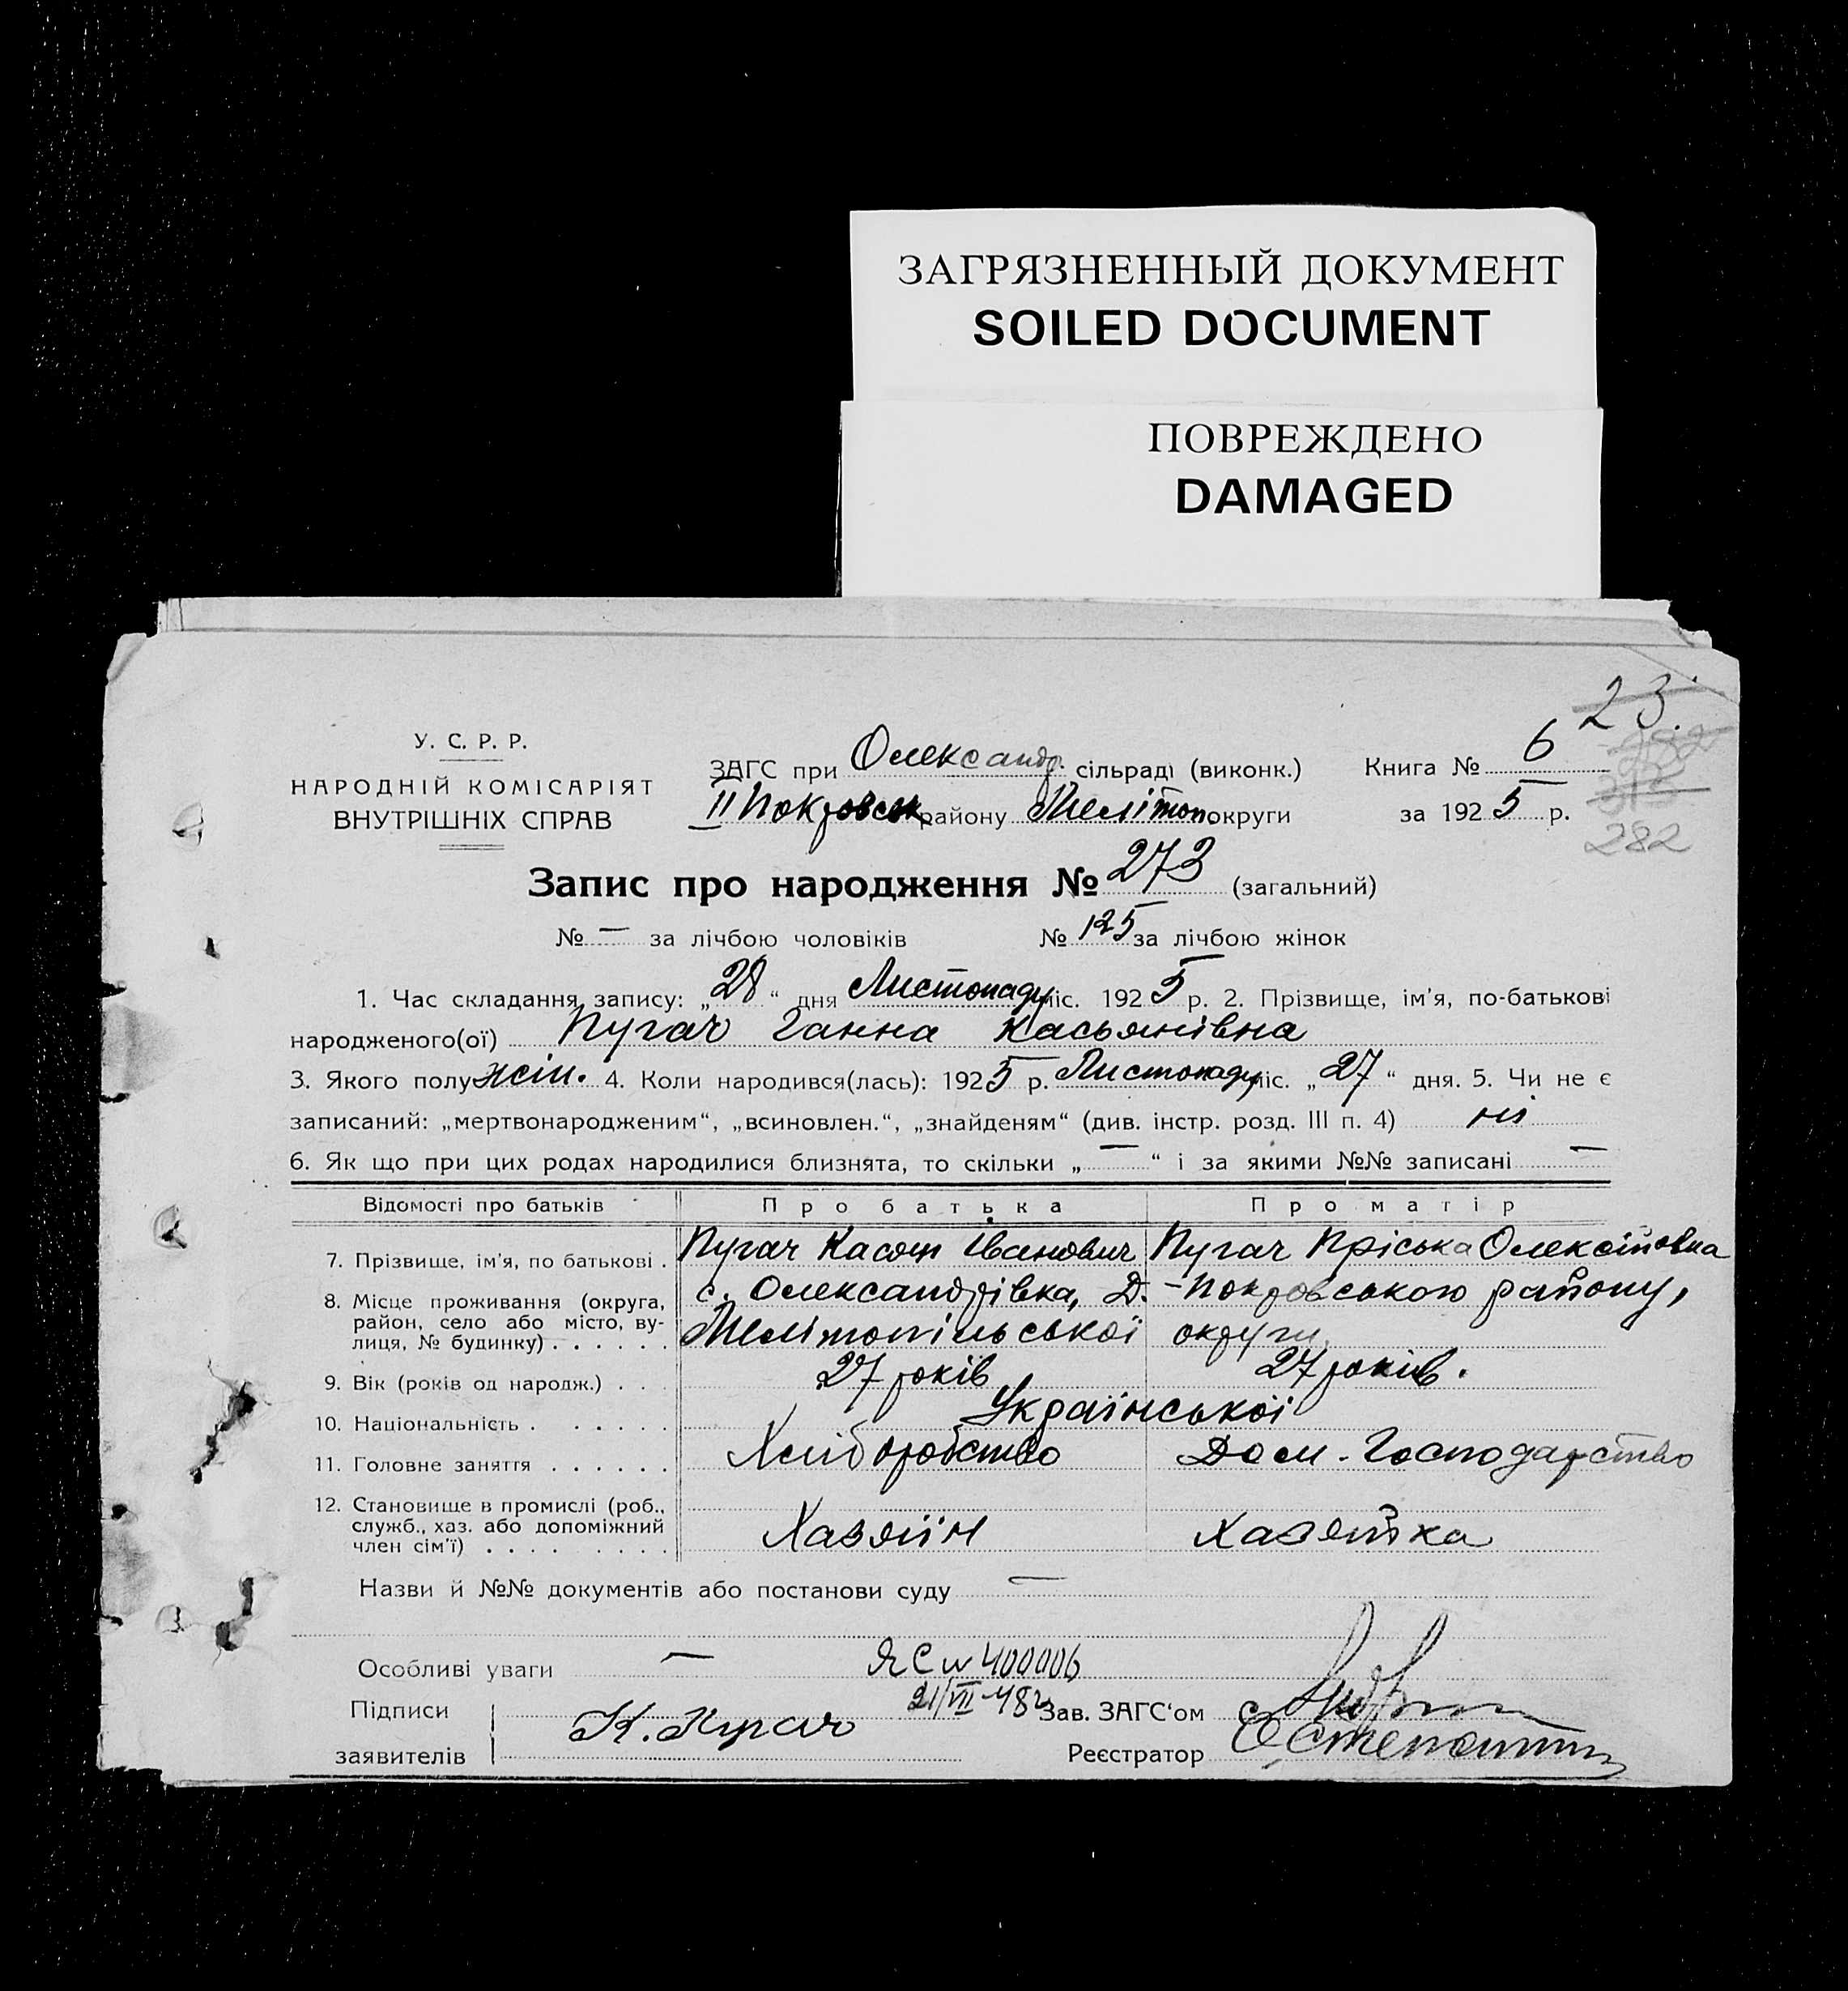 ЗАГРЯЗНЕННЫЙ ДОКУМЕНТ
SOILED DOCUMENT
ПОВРЕЖДЕНО
DAMAGED
23.
282
У. С. Р. Р.
НАРОДНІЙ КОМІСАРІЯТ
ВНУТРІШНІХ СПРАВ
ЗАГС при Олександр. сільраді (виконк.)
ІІ Покровськ району Мелітоп округи
Книга № 6
за 1925 р.
Запис про народження № 273 (загальний)
№ — за лічбою чоловіків № 125 за лічбою жінок
1. Час складання запису: „28“ дня Листопаду міс. 1925 р. 2. Прізвище, ім'я, по-батькові
народженого(ої) Пугач Ганна Касьянівна
3. Якого полу жін. 4. Коли народився(лась): 1925 р. Листопаду міс. „27“ дня. 5. Чи не є
записаний: „мертвонародженим“, „всиновлен.“, „знайденям“ (див. інстр. розд. III п. 4) ні
6. Як що при цих родах народилися близнята, то скільки „—“ і за якими №№ записані —
Відомості про батьків Про батька Про матір
7. Прізвище, ім'я, по батькові . Пугач Касян Іванович Пугач Пріська Олексіївна
8. Місце проживання (округа, район, село або місто, вулиця, № будинку) . . . . . . с. Олександрівка, Д.-Покровського району,
Мелітопільської округи.
9. Вік (років од народж.) . . . 27 років 27 років.
10. Національність . . . . . . Української
11. Головне заняття . . . . . . Хліборобство Дом. Господарство
12. Становище в промислі (роб., служб., хаз. або допоміжний член сім'ї) . . . . . . . . Хазяїн Хазяйка
Назви й №№ документів або постанови суду —
Особливі уваги — ЯС № 400006
21/VII-48г
Підписи
заявителів К. Пугач
Зав. ЗАГС'ом
Реєстратор